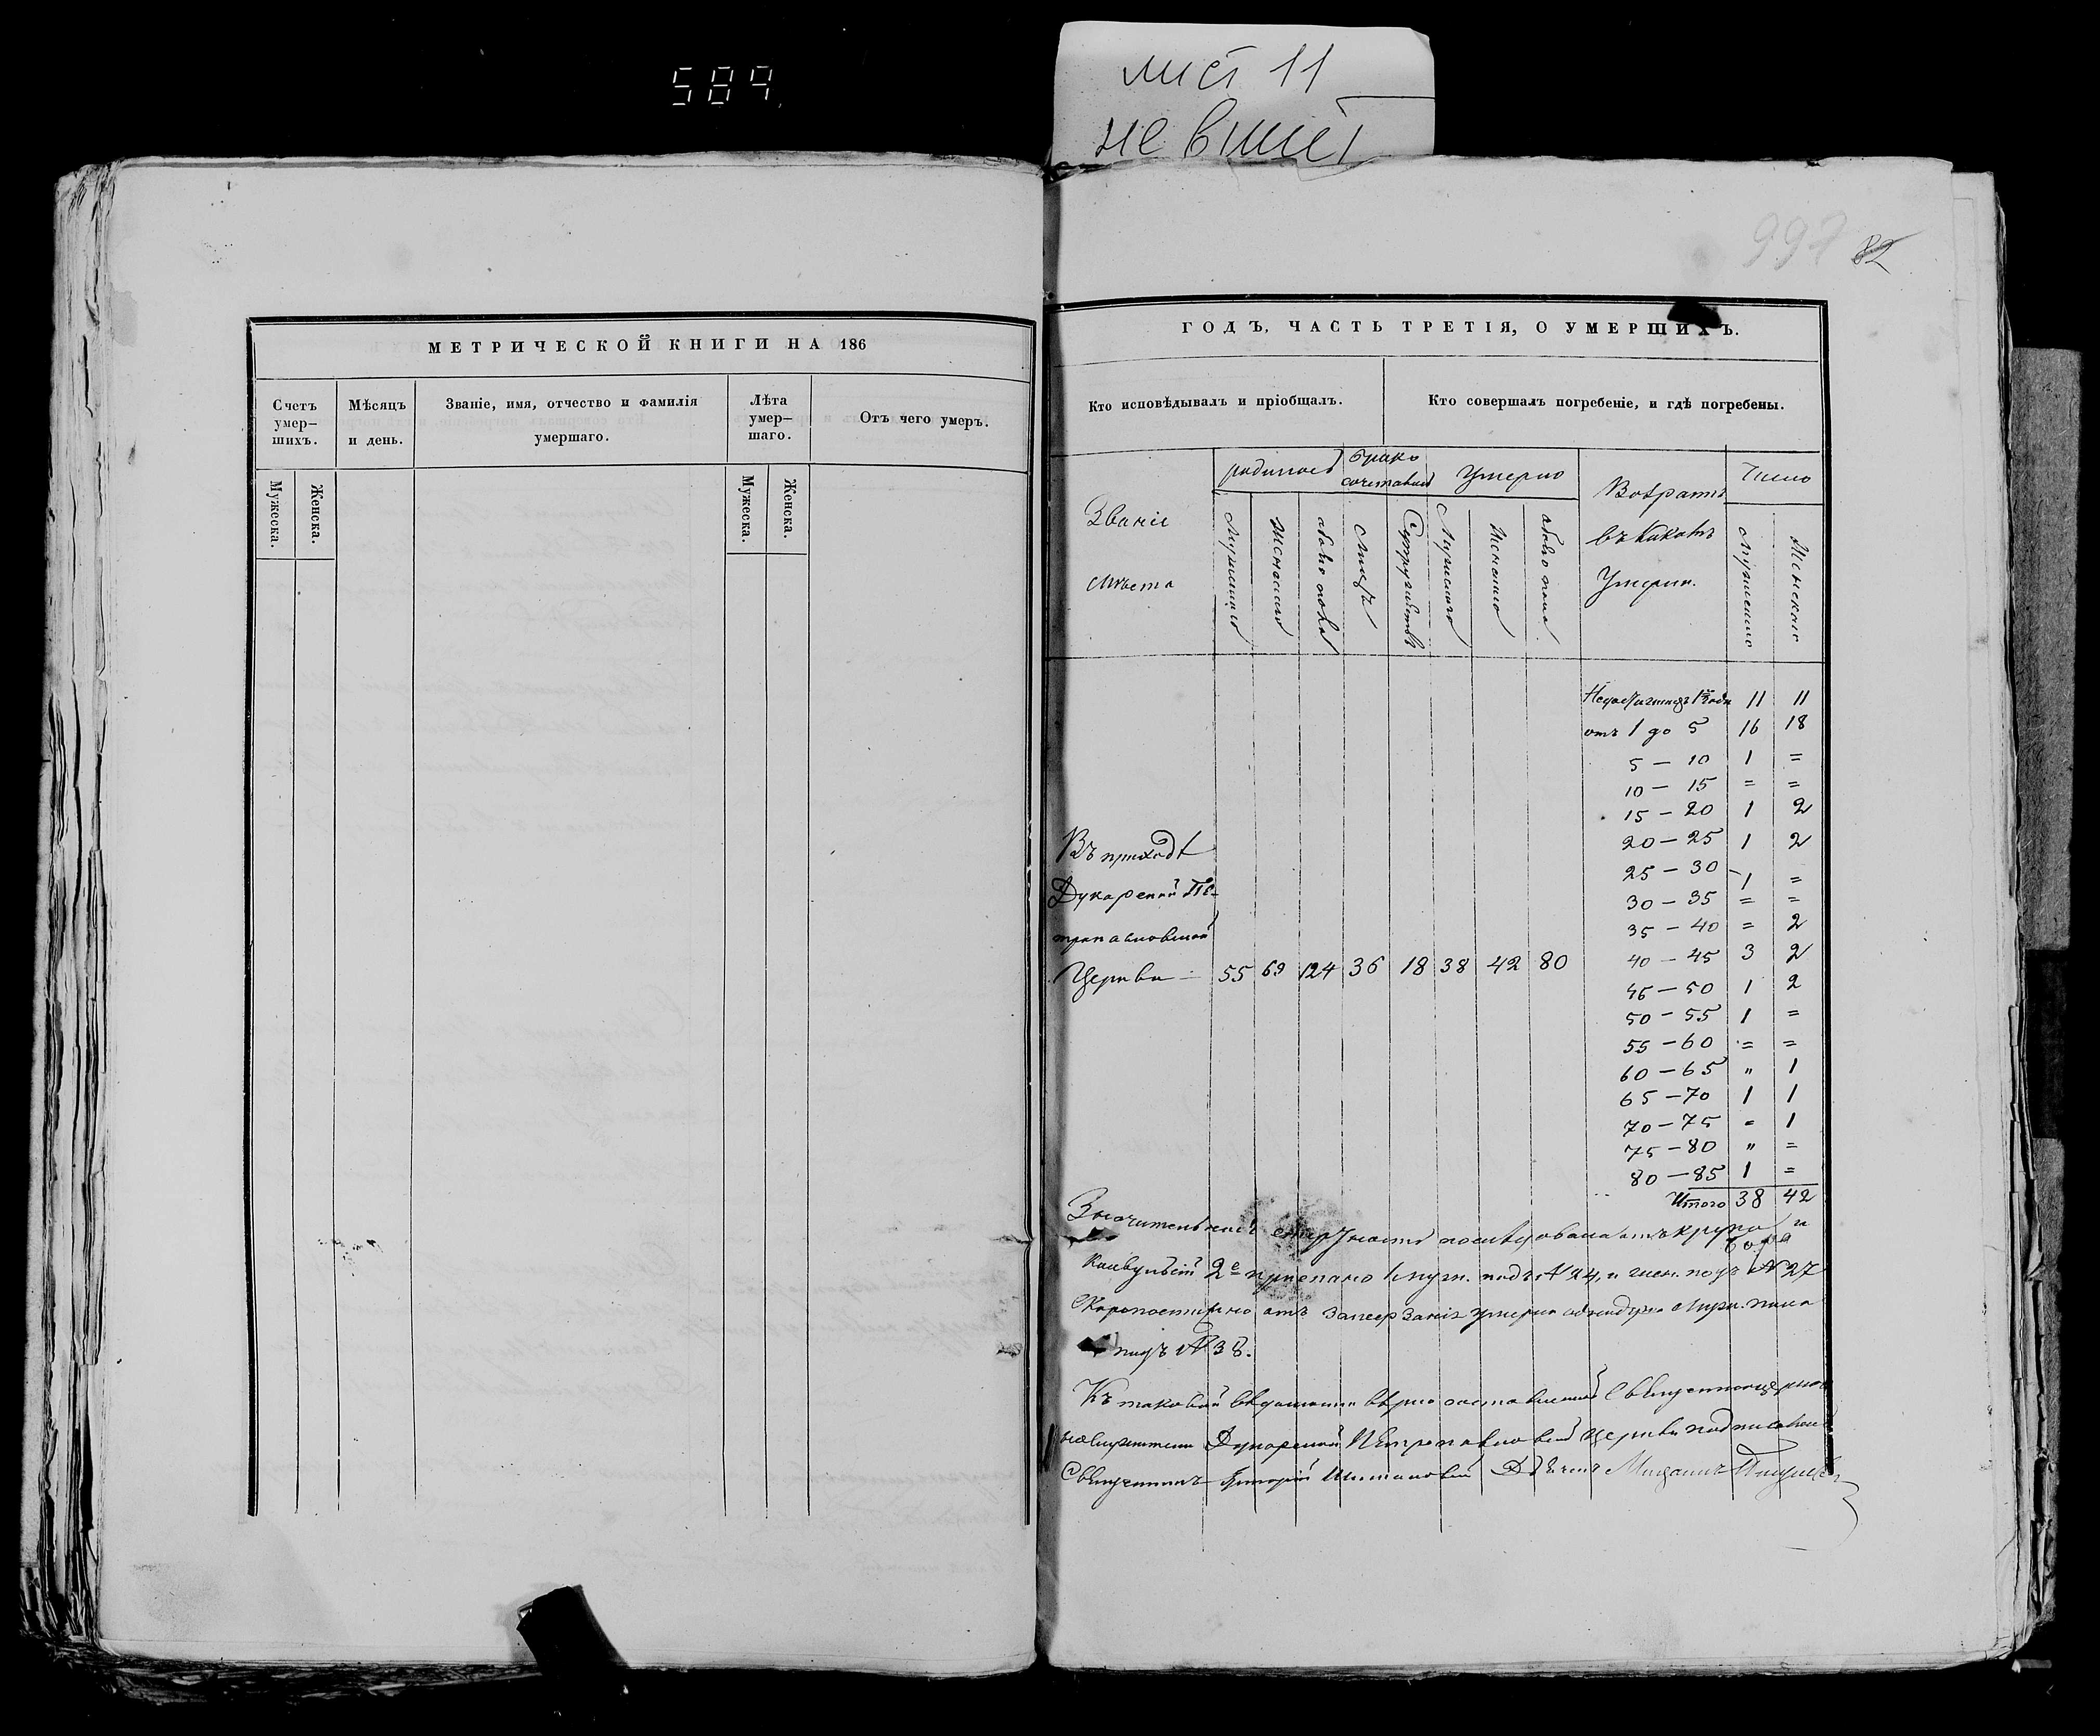 589
лист 11
не вшит
997 82
МЕТРИЧЕСКОЙ КНИГИ НА 186
Счетъ умер-шихъ.
Мѣсяцъ и день.
Званіе, имя, отчество и фамилія умершаго.
Лѣта умер-шаго.
Отъ чего умеръ.
Мужеска.
Женска.
Мужеска.
Женска.
ГОДЪ, ЧАСТЬ ТРЕТІЯ, О УМЕРШИХЪ.
Кто исповѣдывалъ и пріобщалъ.
Кто совершалъ погребеніе, и гдѣ погребены.
Званіе мѣста
родилось
брако сочетавш
Умерло
Возрастъ въ какомъ Умерли.
Число
Мужескаго
Женскаго
обоего пола
Лицъ
Супружествъ
Мужескаго
Женскаго
обоего пола
Мужескаго
Женскаго
Недостигшихъ 1 года 11 11
отъ 1 до 5 16 18
5 — 10 1 =
10 — 15 = =
15 — 20 1 2
20 — 25 1 2
25 — 30 1 =
30 — 35 = =
35 — 40 = 2
40 — 45 3 2
45 — 50 1 2
50 — 55 1 =
55 — 60 = =
60 — 65 " 1
65 — 70 1 1
70 — 75 = 1
75 — 80 " =
80 — 85 1 =
Итого 38 42
Въ приходѣ
Дукорской Пе-
тропавловской
Церкви 55 69 124 36 18 38 42 80
смертность послѣдовала отъ крупа и
2е приспано муж. подъ № 24, и жен. подъ № 27
Скоропостижно отъ замерзанія умерло муж. пола
подъ № 38.
Къ таковой вѣдомости вѣрно составленной Священноцерковно
служители Дукорской Петропавловской Церкви подписались
Священникъ Григорій